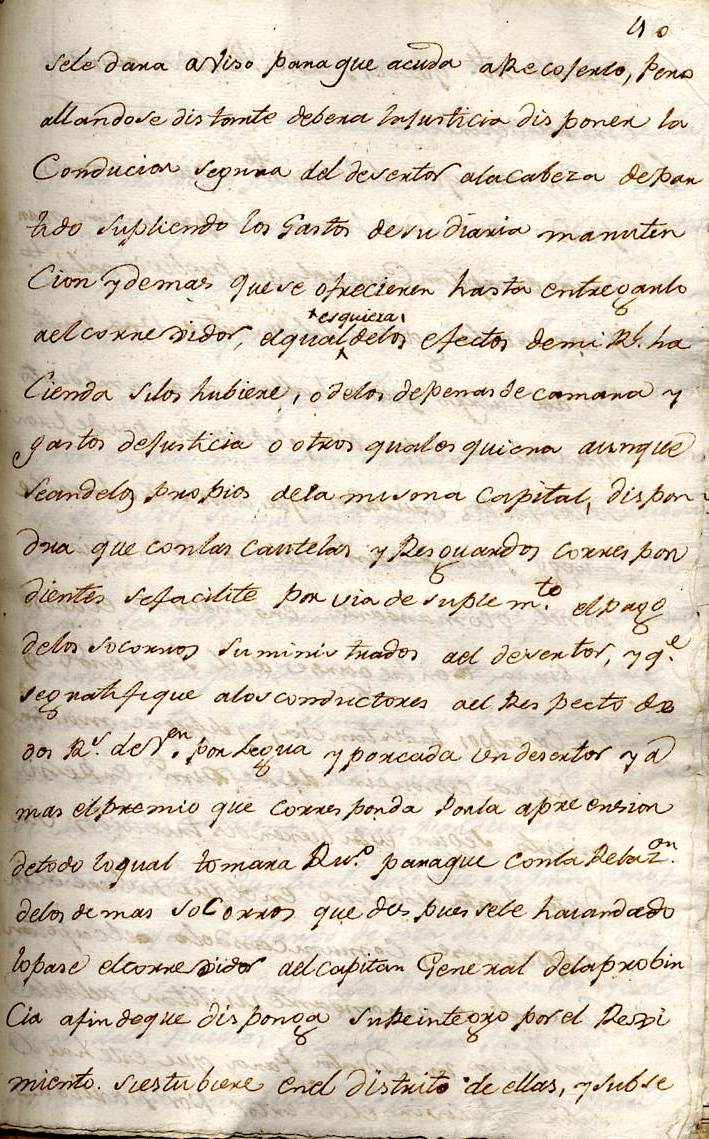 40
sele dara aviso para que acuda a Recojerlo, pero
allandose distante debera la Justicia disponer la
Conducion segura del desertor a la Cabeza de par
tido supliendo los Gastos de su diaria manuten
Cion y demas que se ofrecieren hasta entregarlo
ael corregidor, el qual de los efectos de mi Rl. ha
esquiera
Cienda si los hubiere, o de los de penas de camara y
gastos de Justicia o otros quales quiera aunque
Sean de los propios de la misma Capital, dispon
dra que con las Cautelas y Resguardos correspon
dientes se facilite por via de suplem.to el pago
de los socorros suministrados ael desertor, y q.e
se gratifique a los conductores ael Respecto de
dos Rs. de Ven. por Legua y por cada un desertor y a
mas el premio que corresponda por la apreension
de todo lo qual tomara Ru.o para que con la Relaz.on
de los demas soCorros que despues se le haian dado
lo pase el corregidor ael Capitan General de la probin
Cia afin de que disponga su Reintegro por el Regi
miento. si estubiere en el distrito de ellas, y subse